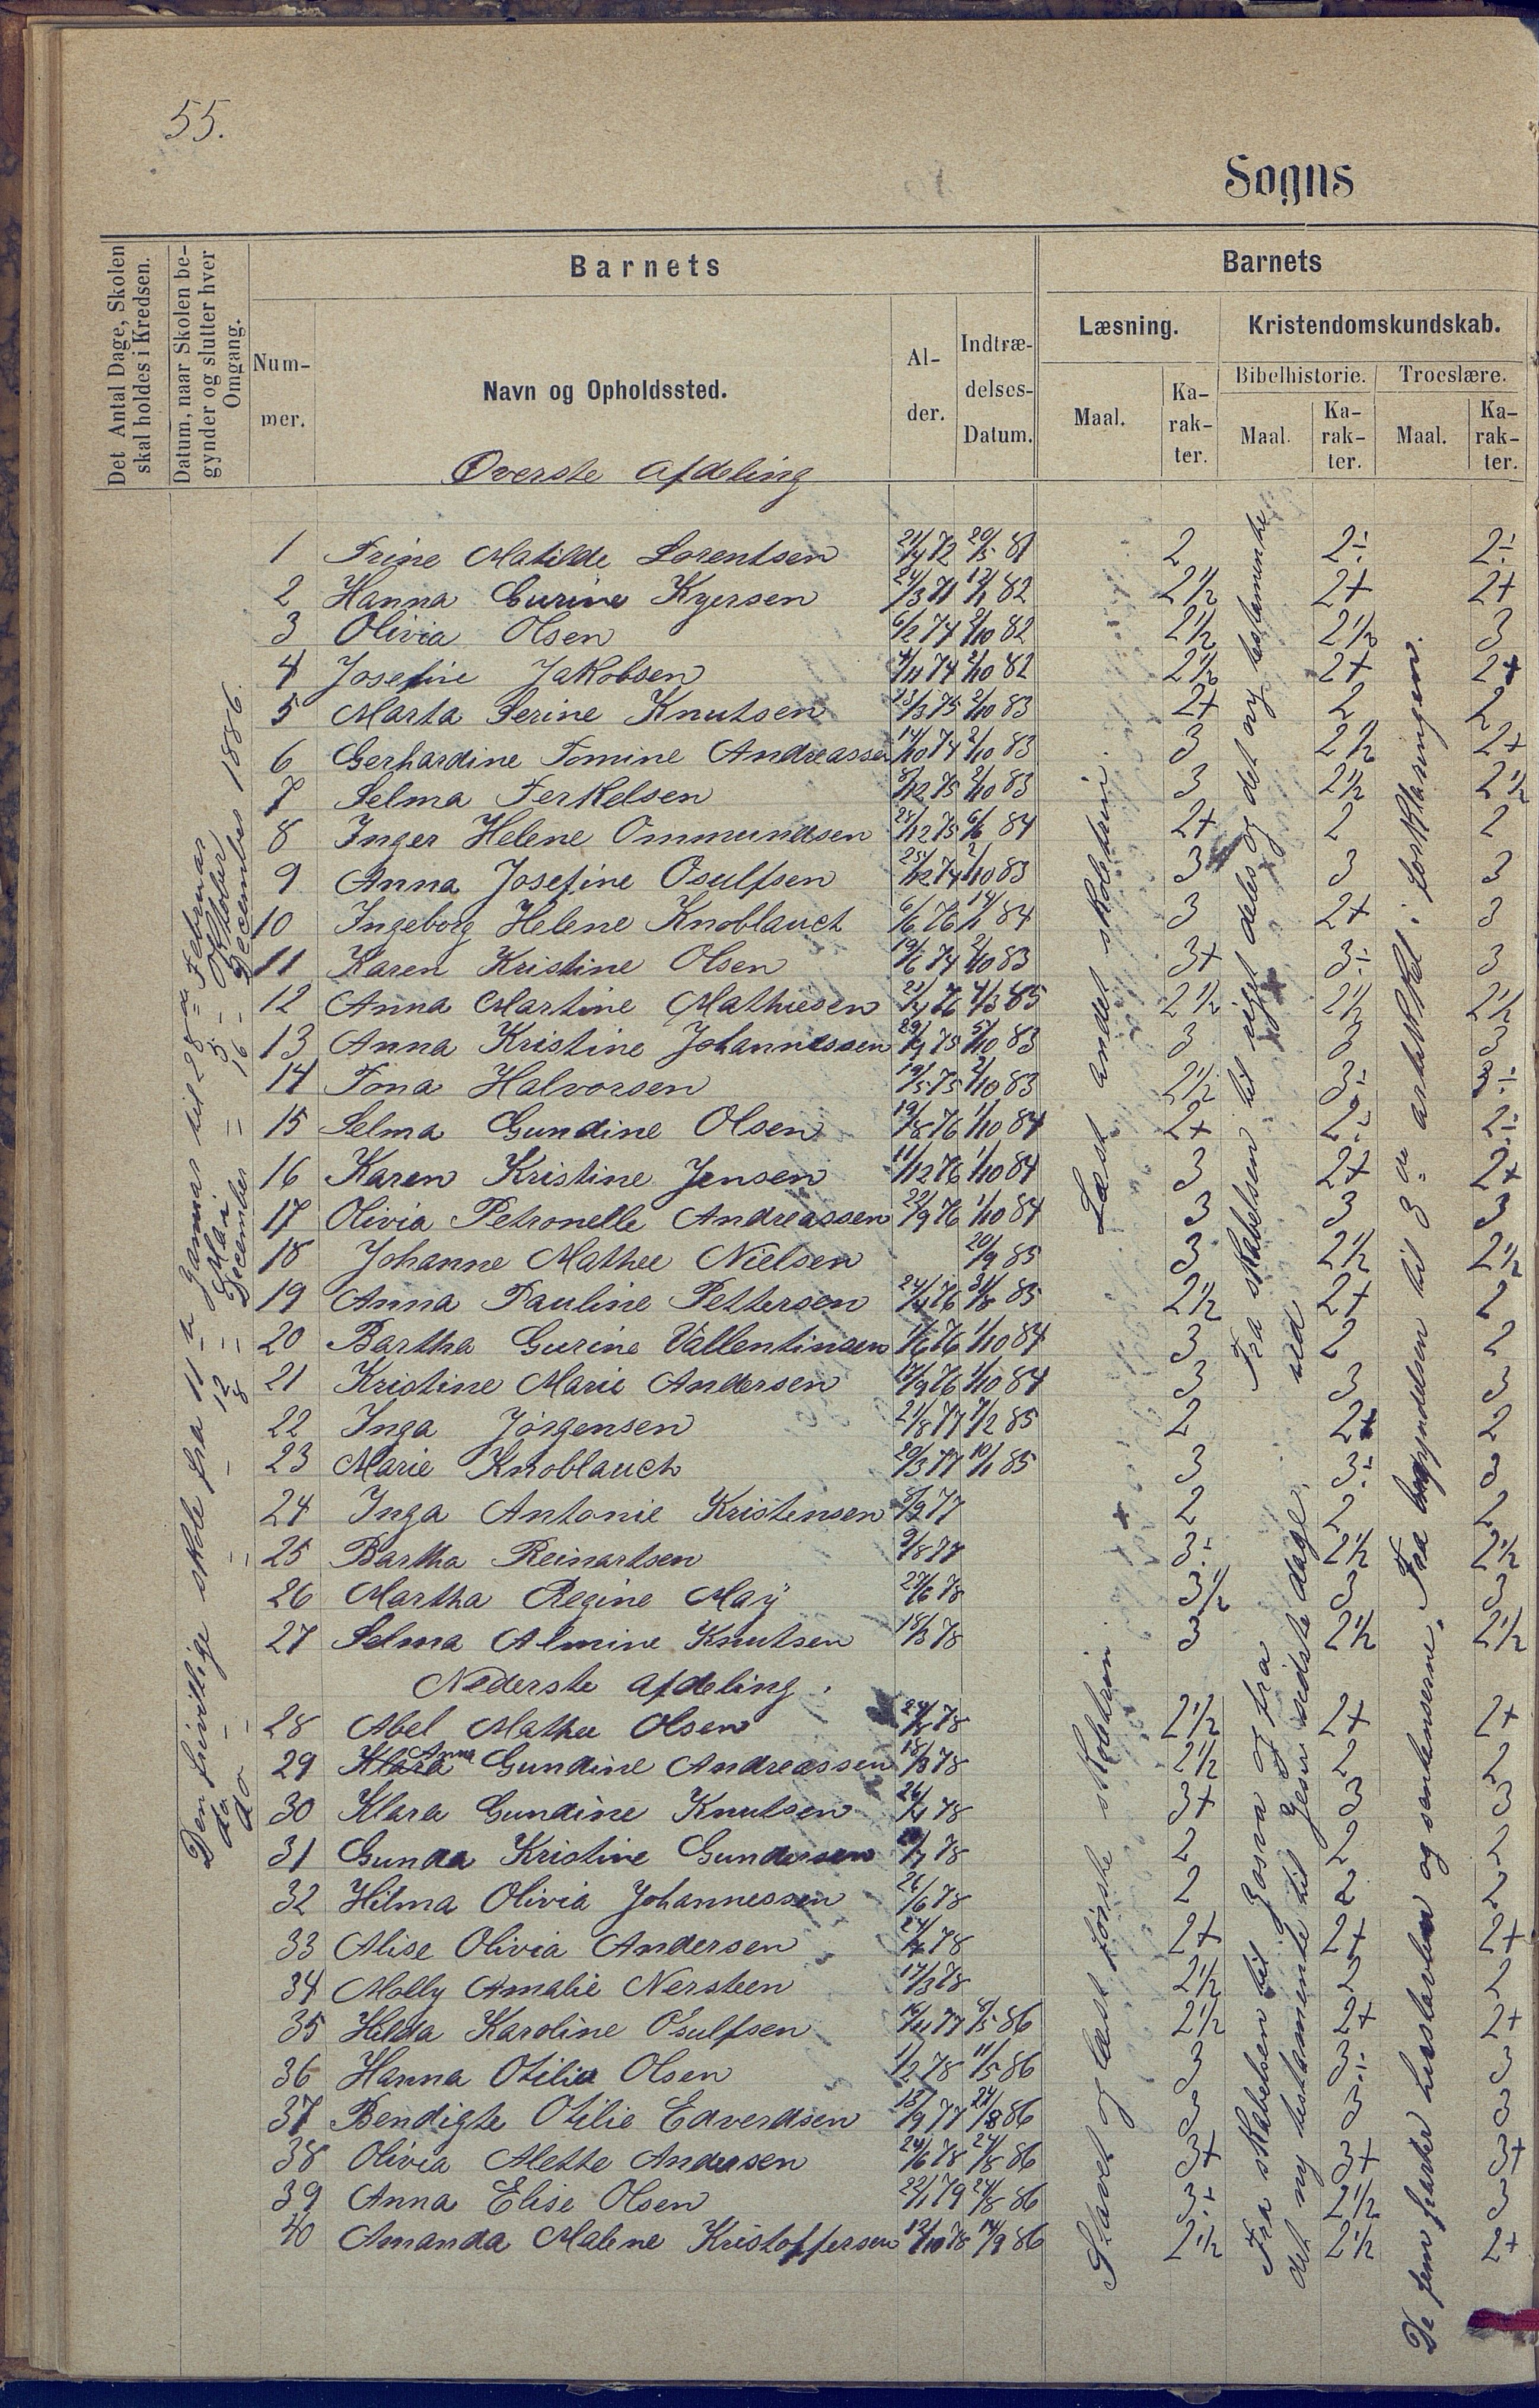 55.
Sogns
Det Antal Dage, Skolen
skal holdes i Kredsen.
Datum, naar Skolen be-
gynder og slutter hver
Omgang.
Barnets
Num-
mer.
Navn og Opholdssted.
Al-
der.
Indtræ-
delses-
Datum.
Barnets
Læsning.
Kristendomskundskab.
Maal.
Ka-
rak-
ter.
Bibelhistorie.
Troeslære.
Maal.
Ka-
rak-
ter.
Maal.
Ka-
rak-
ter.
Øverste afdeling
1 Trine Matilde Lorentsen 21/4 72 20/5 81 2 2÷ 2÷
2 Hanna Gurine Kyersen 24/3 71 12/1 82 2 1/2 2+ 2+
3 Olivia Olsen 6/2 74 2/10 82 2 1/2 2 1/2 3
4 Josefine Jakobsen 4/11 74 2/10 82 2 1/2 2+ 2+
5 Marta Serine Knutsen 23/3 75 2/10 83 2+ 2 2
6 Gerhardine Tomine Andreassen 14/10 74 2/10 83 3 2 1/2 2+
7 Selma Terkelsen 8/12 75 2/10 83 3 2 1/2 2 1/2
8 Inger Helene Ommundsen 25/12 75 6/6 84 2+ 2 2
9 Anna Josefine Osulfsen 25/12 74 2/10 83 3 3 3
10 Ingeborg Helene Knoblauch 6/6 76 14/1 84 3 2+ 3
11 Karen Kristine Olsen 19/6 74 2/10 83 3+ 3÷ 3
12 Anna Martine Mathiesen 21/4 76 4/3 85 2 1/2 2 1/2 2 1/2
13 Anna Kristine Johannessen 29/9 75 5/10 83 3 3 3
14 Tona Halvorsen 19/5 75 2/10 83 2 1/2 3÷ 3÷
15 Selma Gundine Olsen 19/8 76 1/10 84 2+ 2÷ 2÷
16 Karen Kristine Jensen 11/12 76 1/10 84 3 2+ 2+
17 Olivia Petronelle Andreassen 22/9 76 1/10 84 3 3 3
18 Johanne Mathee Nielsen 20/9 85 3 2 1/2 2 1/2
19 Anna Pauline Pettersen 24/4 76 31/8 85 2 1/2 2+ 2
20 Bartha Gurine Vallentinsen 1/6 76 1/10 84 3 2 2
21 Kristine Marie Andersen 17/9 76 1/10 84 3 3 3
22 Inga Jørgensen 21/8 77 7/2 85 2 2+ 2
23 Marie Knoblauch 20/3 77 10/1 85 3 3÷ 3
24 Inga Antonie Kristensen 8/9 77 2 2 2
25 Bartha Reinartsen 9/8 77 3÷ 2 1/2 2 1/2
26 Martha Regine Maÿ 27/6 78 3 1/2 3 3
27 Selma Almine Knutsen 18/3 78 3 2 1/2 2 1/2
Nederste afdeling.
28 Abel Mathee Olsen 24/8 78 2 1/2 2+ 2+
29 Klara Anna Gundine Andreassen 18/3 78 2 1/2 2 2
30 Klara Gundine Knutsen 26/4 78 3+ 3 3
31 Gunda Kristine Gundersen 78 2 2 2
32 Hilma Olivia Johannessen 26/6 78 2 2 2
33 Alise Olivia Andersen 78 2+ 2+ 2+
34 Molly Amalie Nersteen 17/3 78 2 1/2 2 2
35 Hilda Karoline Osulfsen 16/11 77 86 2 1/2 2+ 2+
36 Hanna Otilia Olsen 1/2 78 11/5 86 3 3÷ 3
37 Bendigte Otilie Edverdsen 13/9 77 24/8 86 3 3 3
38 Olivia Alette Andersen 24/6 78 24/8 86 3+ 3+ 3+
39 Anna Elise Olsen 22/1 79 24/8 86 3÷ 2 1/2 3
40 Amanda Malene Kristoffersen 12/10 78 14/9 86 2 1/2 2 1/2 2+
Den frivillige skole fra 11te Januar til 28de Februar
do – – 12 – Mai – 5 – Oktober
do – – 8 – December – 16 – December 1886.
Læst andet skoletrin
Stavet og læst første skoletrin
Fra skabelsen til riget deles og det ny testamente
ved
Fra skabelsen til Josva og fra
det ny testamente til Jesu sidste dage.
De fem parter i og sentenserne. Fra begyndelsen til 3de artikkel i forklaringen.